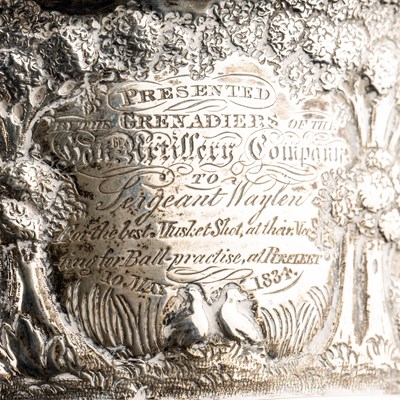 PRESENTED
BY THE GRENADIERS OF THE
Honble. Artillery Company
TO
Sergeant Waylen
For the best Musket Shot, at their Mee
ting for Ball-practise, at PURFLEET
10. MAY 1834.